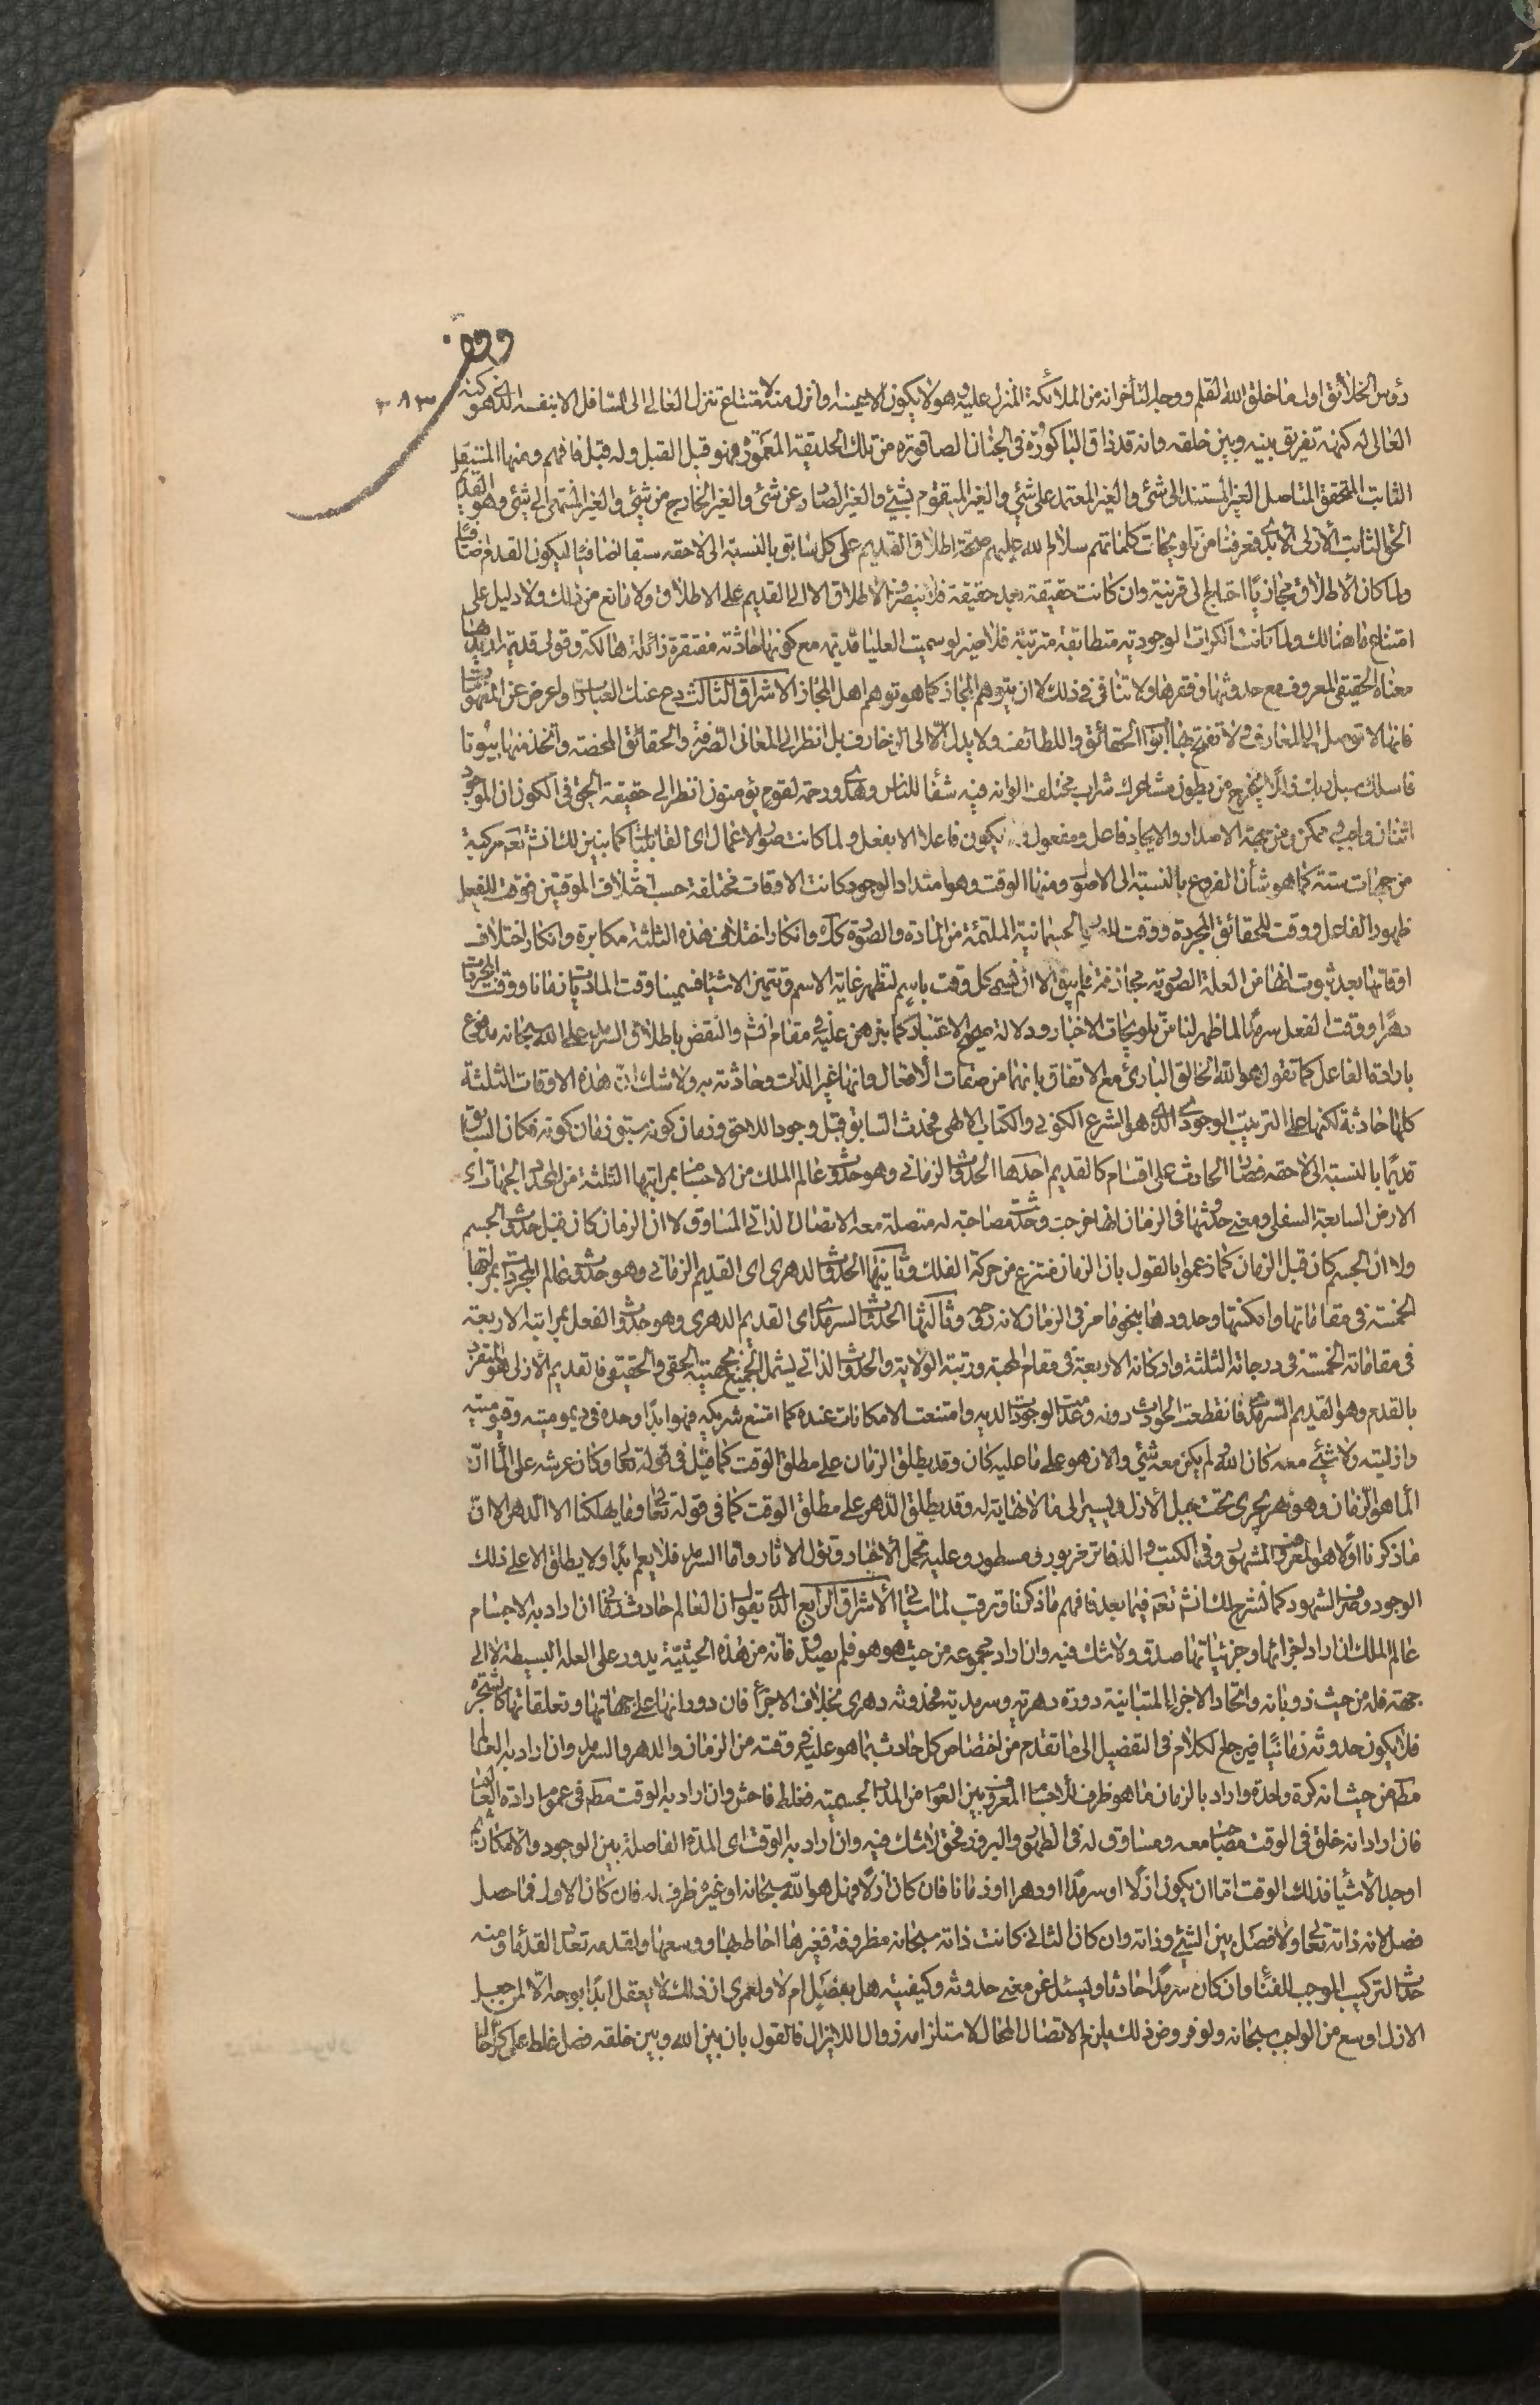 رؤس الخلائق اول ما خلق الله القلم ووجه التأخر انه من الملائكة المنزل عليه وهو لا يكون الا وانزل منه لامتناع تنزل العالى الى السافل الا بنفسه الذى هو كنه
العالى له كنهه تفريق بينه وبين خلقه وانه قد ذاق الباكورة فى الجنان الصاقورة من تلك الحديقة فهو قبل القبل وله قبل فافهم ومنها المستقل
الثابت المتحقق المتاصل الغير المستند الى شئ والغير المعتمد على شئ والغير المتقوم بشئ والغير الصادر عن شئ والغير الخارج من شئ والغير المنتهى الى شئ وهو القديم
الحق الثابت الأزلى الأبدى فعرفنا من تلويحات كلماتهم سلام الله عليهم صحة اطلاق القديم على كل سابق بالنسبة الى لاحقه سبقا اضافيا ليكون القدم اضافيا
ولما كان الاطلاق مجازيا احتاج الى قرينة وان كانت حقيقة بعد حقيقة فلا ينصرف الاطلاق الا الى القديم على الاطلاق ولا مانع من ذلك ولا دليل على
امتناع ما هنالك ولما كانت الكرات الوجودية متطابقة مترتبة فلا ضير لو سميت العليا قديمة مع كونها حادثة مفتقرة زائلة هالكة وقولى قديمة اريد بها
معناه الحقيقى المعروف مع حدوثها وفقرها ولا تنافى فى ذلك لا ان يتوهم المجاز كما هو توهم اهل المجاز الاشراق الثالث دع عنك العبارات واعرض عن المفهومات
فانها لا توصل الى المعارف ولا تفتح بها ابواب الحقائق واللطائف ولا يدل الا الى الزخارف بل انظر الى المعانى الصرفة والحقائق المحضة واتخذ منها بيوتا
فاسلك سبل ربك ذللا يخرج من بطون مشاعرك شراب مختلف الوانه فيه شفاء للناس وهدى ورحمة لقوم يؤمنون انظر الى حقيقة الحق فى الكون ان الموجود
اثنان واجب وممكن ومن جهة الاصدار والايجاد فاعل ومفعول ولا يكون فاعلا الا بفعل ولما كانت صور الاعمال اى القابليات كما نبين لك انشاء نعم مركبة
من جهات ستة كما هو شأن الفروع بالنسبة الى الاصول ومنها الوقت وهو امتداد الوجود كانت الاوقات مختلفة حسب اختلاف الموقتين فوقت للفعل
ظهور الفاعل ووقت للحقائق المجردة ووقت الجسمانية الملتئمة من المادة والصورة وانكار اختلاف هذه الثلثة مكابرة وانكار اختلاف
اوقاتها بعد ثبوت انها من العلة الصورية مجازفة فلم يبق الا ان نسمى كل وقت باسم لتظهر غاية الاسم وتتميز الاشياء فسمينا وقت الماديات زمانا ووقت المجردات
دهرا ووقت الفعل سرمدا لما ظهر لنا من تلويحات الاخبار ودلالة صحيح الاعتبار كما نبرهن عليه فى مقامه انشاء والنقض باطلاق السرمد على الله سبحانه مدفوع
بارادة الفاعل كما تقول هو الله الخالق البارئ مع الاتفاق بانهما من صفات الأفعال وانها غير الذات وحادثة به ولا شك ان هذه الاوقات الثلثة
كلها حادثة لكنها على الترتيب الوجودى الذى هو الشرع الكونى والكتاب الالهى فحدث السابق قبل وجود اللاحق وزمان كونه سبق زمان كونه فكان السابق
قديما بالنسبة الى لاحقه فصار الحادث على اقسام كالقديم احدها الحدوث الزمانى وهو حدوث عالم الملك من الاجسام بمراتبها الثلثة من محدد الجهات الى
الارض السابعة السفلى ومعنى حدوثها فى الزمان انها خرجت وحدثت مصاحبة له متصلة معه الاتصال الذاتى المساوق لا ان الزمان كان قبل حدوث الجسم
ولا ان الجسم كان قبل الزمان كما زعموا بالقول بان الزمان منتزع من حركة الفلك وثانيها الحدوث الدهرى اى القديم الزمانى وهو حدوث عالم المجردات بمراتبها
الخمسة فى مقاماتها وامكنتها وحدودها بنحو ما مر فى الزمان لانه روحه وثالثها الحدوث السرمدى اى القديم الدهرى وهو حدوث الفعل بمراتبه الاربعة
فى مقاماته الخمسة فى درجاته الثلثة واركانه الاربعة فى مقام المحبة ورتبة الولاية والحدوث الذاتى يشمل الجميع بمعنييه الحقى والحقيقى فالقديم الأزلى هو المتفرد
بالقدم وهو القديم السرمدى فانقطعت الحوادث دونه وعدمت الوجودات لديه وامتنعت الامكانات عنده كما امتنع شريكه فهو ابدا وحده فى ديمومته وقيوميته
وازليته ولا شئ معه كان الله ولم يكن معه شئ والان هو على ما عليه كان وقد يطلق الزمان على مطلق الوقت كما قيل فى قوله تعالى وكان عرشه على الماء ان
الماء هو الزمان وهو نهر يجرى تحت جبل الأزل ويسير الى ما لا نهاية له وقد يطلق الدهر على مطلق الوقت كما فى قوله تعالى وما يهلكنا الا الدهر الا ان
ما ذكرنا اولا هو المعروف المشهور وفى الكتب والدفاتر مزبور ومسطور وعليه تحمل الأخبار وتؤل الاثار واما السرمد فلا يعم ابدا ولا يطلق الا على ذلك
الوجود وصرف الشهود كما نشرح لك انشاء نعم فيما بعد فافهم ما ذكرنا وترقب لما سيأتى الاشراق الرابع الذى يقول ان العالم حادث زمانى ان اراد به الاجسام
عالم الملك ان اراد اجزائها وجزئياتها صدق ولا شك فيه وان اراد مجموعه من حيث هو هو فلم يصدق فانه من هذه الحيثية يدور على العلة البسيطة لا الى
جهة فله من حيث ذوبانه واتحاد الاجزاء المتباينة دورة دهرية وسرمدية فحدوثه دهرى بخلاف الاجزاء فان دورانها على جهاتها وتعلقاتها كالشجرة
فلا يكون حدوثه زمانيا فيرجع الكلام فى التفصيل الى ما تقدم من اختصاص كل حادث بما هو عليه فى وقته من الزمان والدهر والسرمد وان اراد به العالم
من حيث انه كرة واحدة واراد بالزمان ما هو ظرف للاجسام المعروف بين العوام من المدد الجسمية فغلط فاحش وان اراد به الوقت فى عموم ارادة العالم
فان اراد انه خلق فى الوقت مصاحبا معه ومساوق له فى الظهور والبروز فحق لا شك فيه وان اراد به الوقت اى المدة الفاصلة بين الوجود والامكان ثم
اوجد الأشياء فذلك الوقت اما ان يكون ازلا او سرمدا او دهرا او زمانا فان كان ازلا فهل هو الله سبحانه او غيره ظرف له فان كان الاول فما حصل
فصل لانه ذاته تعالى ولا فصل بين الشئ وذاته وان كان الثانى كانت ذاته سبحانه مظروفة فغيرها احاط بها ووسعها ولقدمه تعدد القدماء ومنه
حدث التركيب الموجب للفناء وان كان سرمدا حادثا ويسئل عن معنى حدوثه وكيفيته هل بفصل ام لا ولعمرى ان ذلك لا يعقل ابدا بوجه الا لمن جعل
الازل اوسع من الواجب سبحانه ولو فرض ذلك يلزم الاتصال المحال لاستلزامه زوال اللايزال فالقول بان بين الله وبين خلقه فصل غلط على كل حال